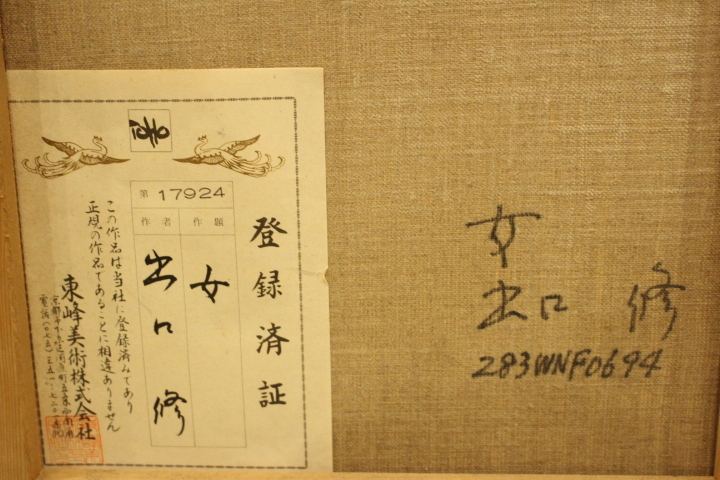 登録済証
TOHO
第 17924
作題
女
作者
出口修
この作品は当社に登録済みであり
正規の作品であることに相違ありません
東峰美術株式会社
女
出口 修
283WNF0694